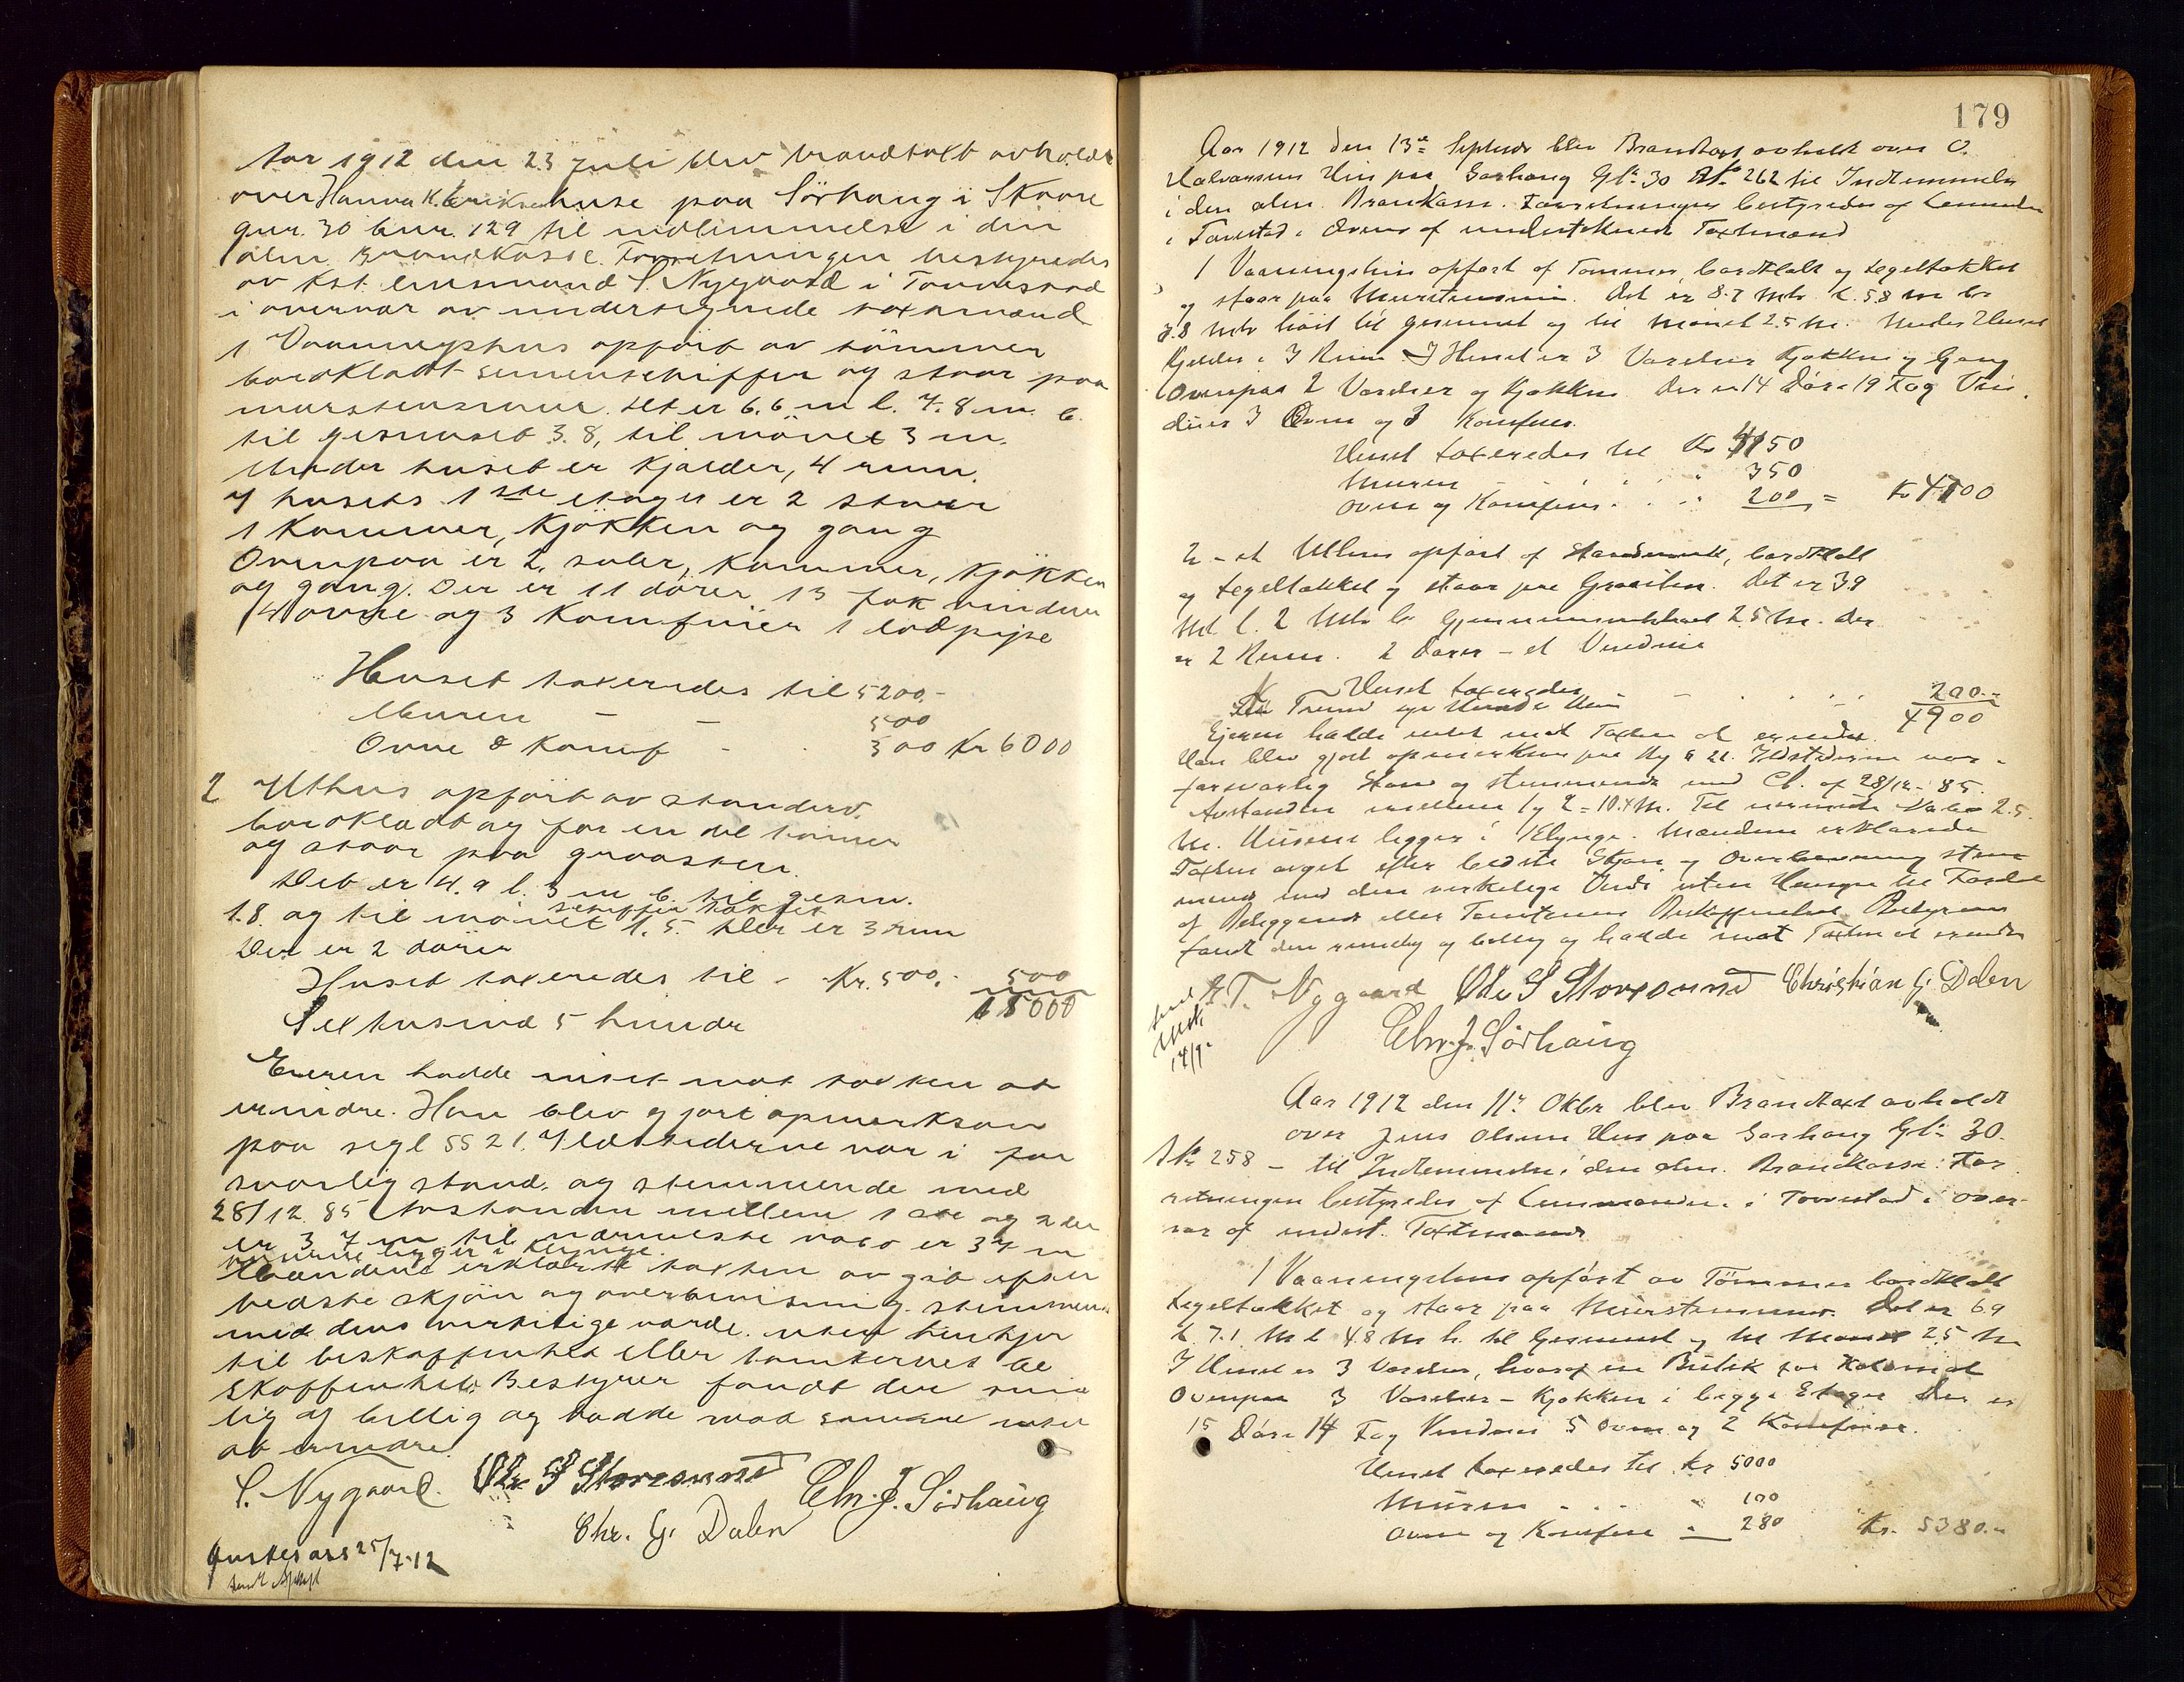 Aar 1912 den 23 juli blev brandtakt avholdt
over Hanna K. Eriksens huse paa Sörhaug i Skaare
gnr. 30 bnr. 129 til indlimmelse i den
alm. Brandkasse. Forretningen bestyredes
av kst. lensmand S. Nygaard i Torvestad
i overvær av undertegnede taxtmænd
1 Vaaningshus opfört av tömmer
bordklædt sementskiffer og staar paa
murstensmur. Det er 6.6 m l. 7.8 m. b.
til gesimset 3.8, til mönet 3 m.
Under huset er kjælder, 4 rum.
I husets 1ste etage er 2 stuer
1 Kammer, kjökken og gang
Ovenpaa er 2 saler, kammer, kjökken
og gang. Der er 11 dörer 13 fak vinduer
4 ovne og 3 Komfurer 1 lodpipe
Huset takseredes til 5200.-
Muren - - 500
Ovne & Komf - . 300 Kr 6000
2 Uthus opfört av standerv.
bordklædt og for en del tömmer
og staar paa graasten.
Det er 4.9 l. 3 m b. til gesm.
skiffer tækket
1.8 og til mönet 1.5. Der er 3 rum
Der er 2 dörer
Huset takseredes til - Kr. 500.- 500
6500
Sex tusind 5 hundr
Eieren hadde intet mot taksten at
erindre. Han blev gjort opmerksom
paa regl §§ 21. Ildstederne var i for
svarlig stand. og stemmende med
28/12 85 Avstanden mellem 1 ste og 2 den
er 3 7 m til nærmeste nabo er 37 m
husene ligger i klynge.
Mændene erklærte taksten av git efter
bedste skjön og overbevisning. stemmende
med dens virkelige værdi. uten hensyn
til beskaffenhet eller tomternes be
skaffenhet. Bestyrer fandt den rime
lig og billig og hadde mod samme intet
at erindre.
S. Nygaard. Ole S Storesund Eln. J. Sörhaug
Chr. G. Dalen
25/7-12
179
Aar 1912 den 13de Septembr blev Brandtaxt avholdt over O.
Halvorsens Hus paa Sørhaug Gl. 30 Bl. 262 til Indlemmelse
i den alm. Brandkasse. Forretningen bestyredes af Lensmanden
i Torvestad i Overv af undertegnede Taxtmænd
1 Vaaningshus opført af Tømmer, bordklædt og tegltækket
og staar paa Murstensmur. Det er 8.7 Mtr l. 5.8 m br
3.8 mtr høit til gesimset og til Mønet 2.5 M. Under Huset
Kjelder i 3 Rum. I Huset er 3 Værelser Kjøkken og Gang
Ovenpaa 2 Værelser og Kjøkken. Der er 14 Døre 19 Fag Vin
duer 3 Ovne og 3 Komfurer.
Huset taxeredes til Kr 4150
Muren - . . . 350
Ovne og Komfurer . . . 200 = Kr 4700
2 - et Uthus opført af Standerverk, bordklædt
og tegltækket og staar paa Graasten. Det er 3.9
Mtr l. 2 Mtr br Gjennemsnitshøide 2.5 M. Der
er 2 Rum. 2 Dører - et Vindue
Huset taxeredes - . . . 200.-
4900
Ejeren hadde intet mod Taxten at erindre.
Han blev gjort opmerksom paa Rg § 21. Ildstederne var i
forsvarlig Stand og stemmende med Cb. af 28/12-85.
Avstanden mellem 1 og 2 = 10.4 M. Til nærmeste Nabo 2.5
M. Husene ligger i Klynge. Mændene erklærede
Taxten avgit efter bedste Skjøn og Overbevisning stem
mende med den virkelige Verdi uten Hensyn til Fordel
af Beliggenhed eller Tomternes Beskaffenhed. Bestyreren
fandt den rimelig og billig og hadde mot Taxten at erindre
S.T. Nygaard Ole S Storesund Christian G. Dalen
Eln. J. Sörhaug
14/9-
Aar 1912 den 11te Oktbr blev Brandtaxt avholdt
over Jens Olsens Hus paa Sørhaug Gl. 30.
Bl. 258 - til Indlemmelse i den alm. Brandkasse. For
retningen bestyredes af Lensmanden i Torvestad i over-
vær af underst. Taxtmænd
1 Vaaningshus opført av Tömmer bordklædt
tegltækket og staar paa Murstensmur. Det er 6.9
l. 7.1 M b 4.8 M h. til Gesimset og til Mønet 2.5 M
I Huset er 3 Værelser, hvoraf en Butik for Kolonial
Ovenpaa 3 Værelser - Kjøkken i begge Etager Der er
15 Döre 14 Fag Vinduer 5 Ovne og 2 Komfurer.
Huset taxeredes til Kr 5000
Muren - . . . 100
Ovne og Komfure - 280 Kr. 5380.-